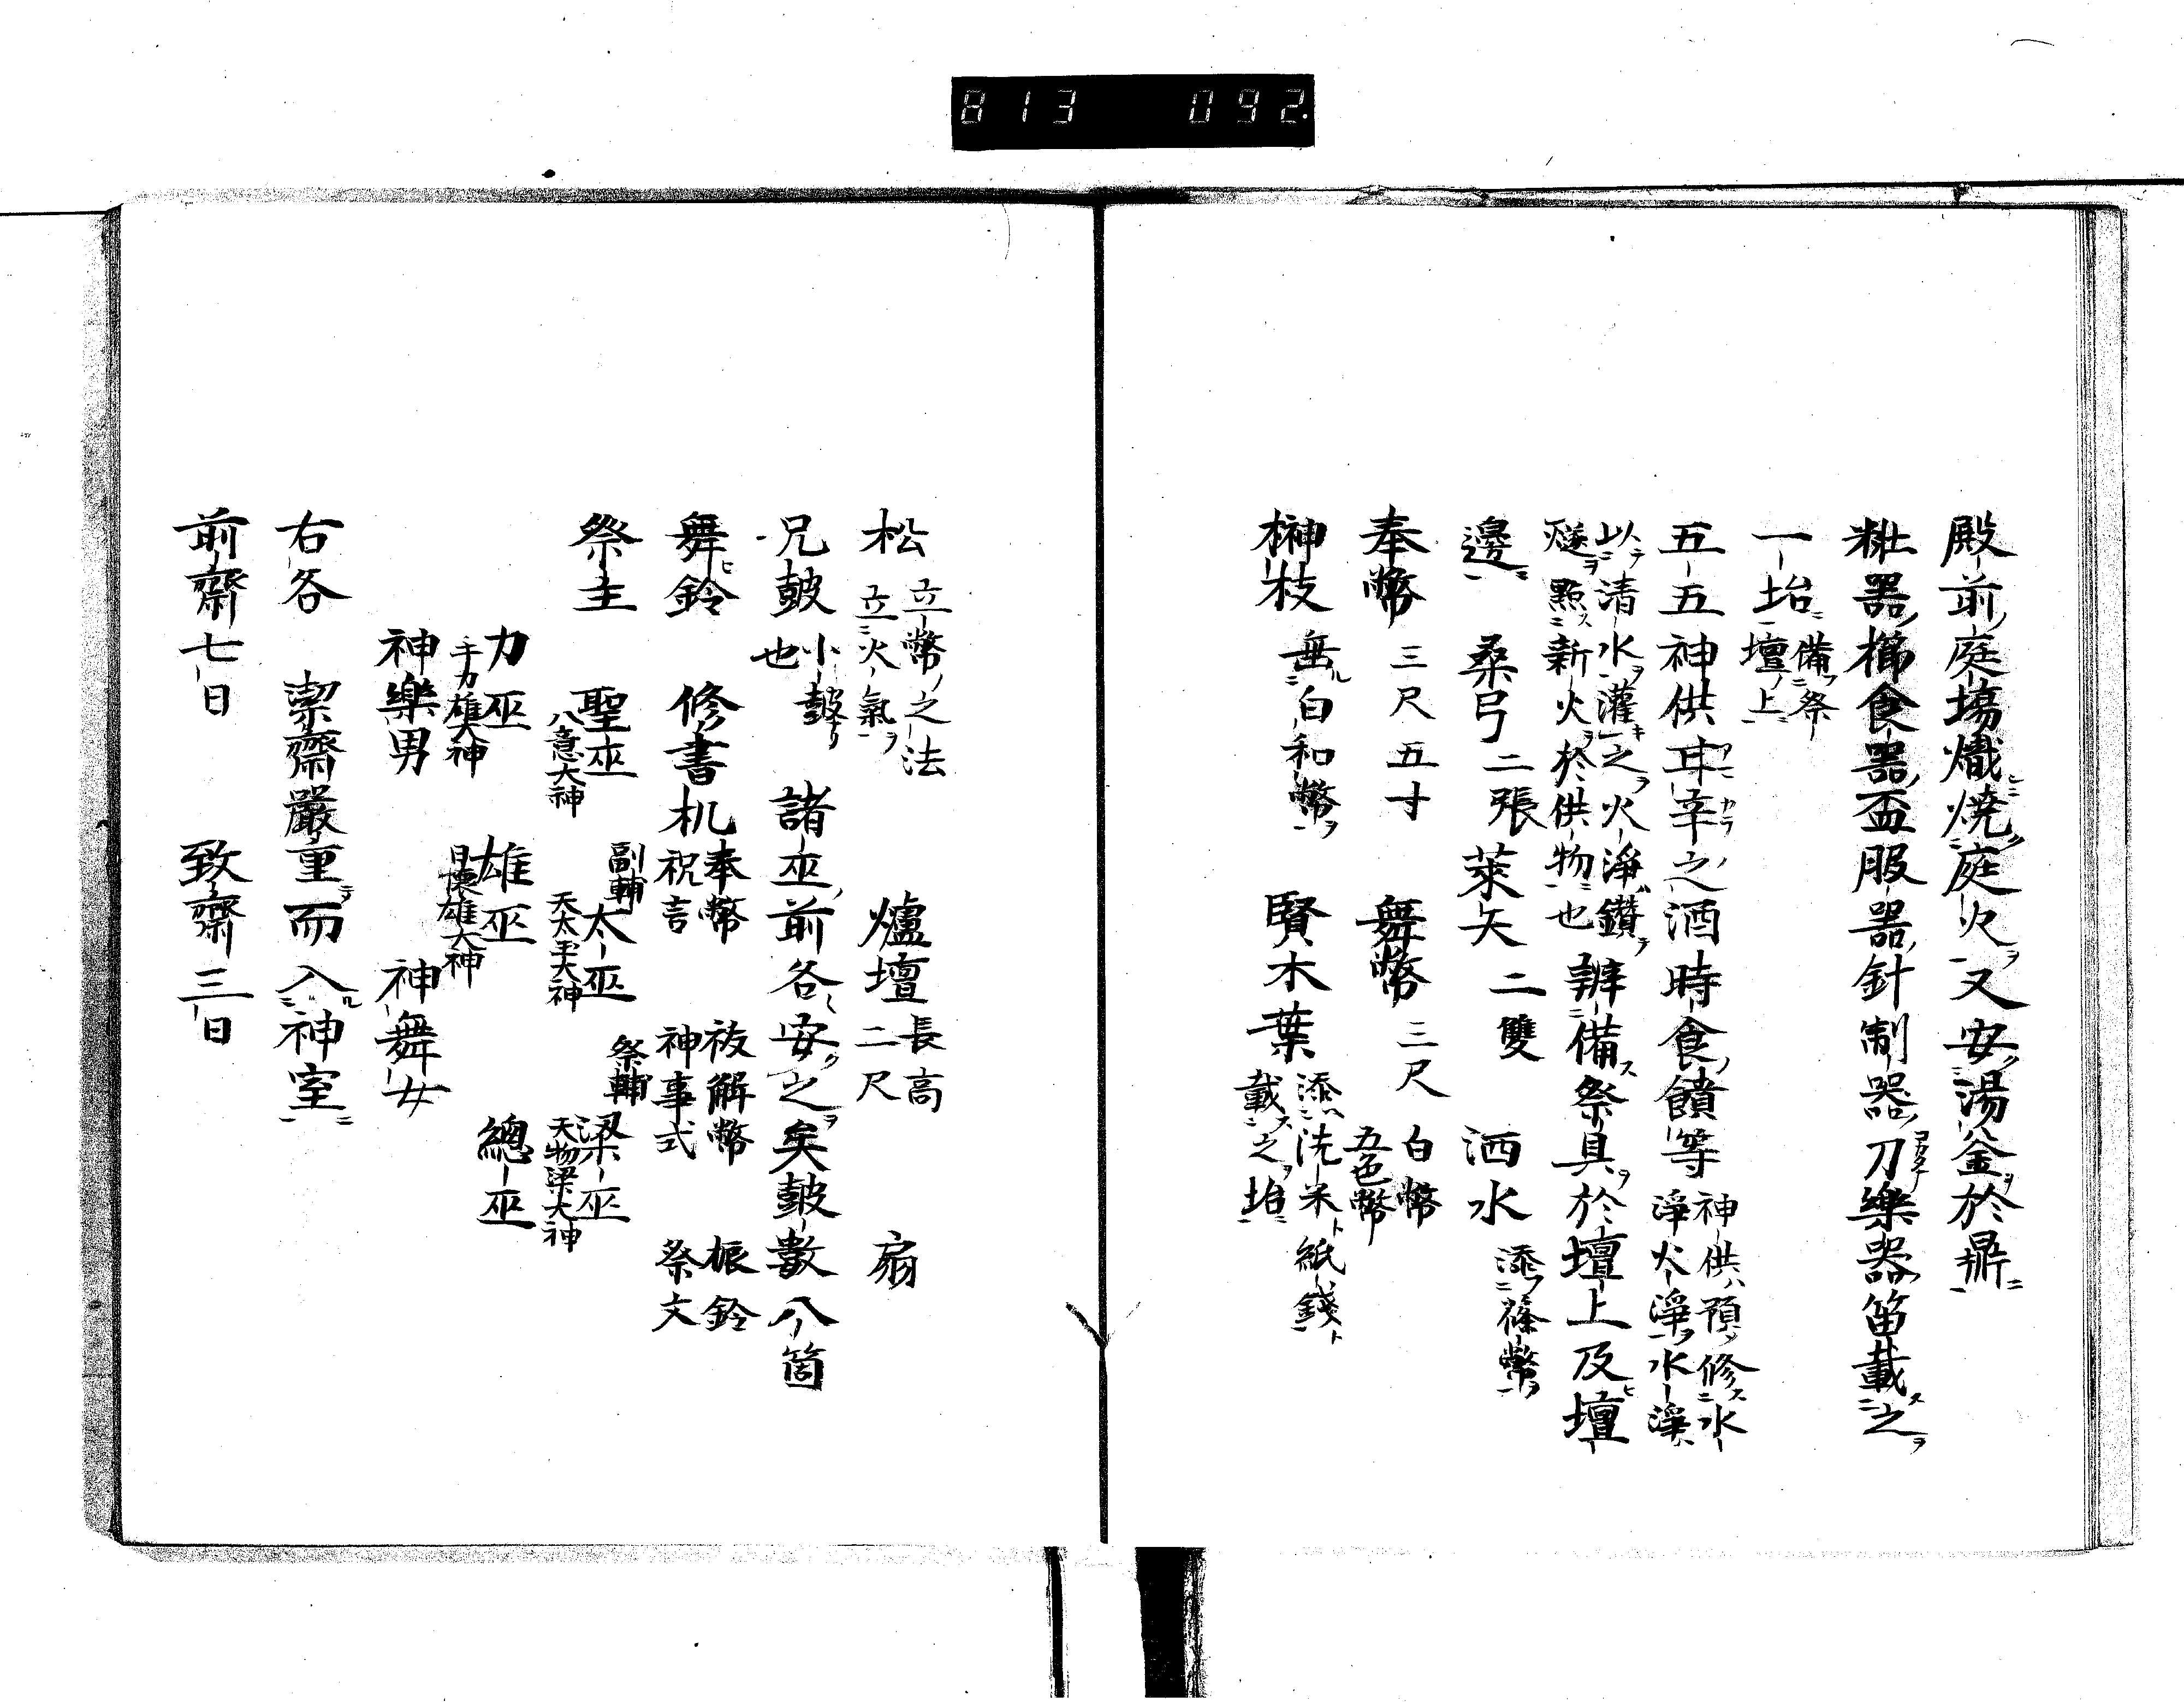 813 092.
殿前庭場熾燒庭火又安湯釜於鼎
粧器櫛食器盃服器針制器刀樂器笛載之
一坮 備祭
壇上
五五神供 辛之酒時食饋等 神供預修水
淨火淨水淨
以清水灌之火淨鑚
燧點新火於供物也 辨備祭具於壇上及壇
邊 桑弓 二張 萊矢 二雙 洒水 添篠幣
奉幣 三尺五寸 舞幣 三尺 白幣
五色幣
榊枝 垂白和幣 賢木葉 添洗米紙錢
載之坮
松 立幣之法
立火氣 爐壇 長高
二尺 扇
兄鼓 小鼓
也 諸巫前各安之矣鼓數八箇
舞鈴 修書机 奉幣
祝言 祓解幣
神事式 振鈴
祭文
祭主 聖巫 八意大神 副輔 太巫 天太玉大神 祭輔 梁巫 天物梁大神
力巫 手力雄大神 雄巫 日懷雄大神 總巫
神樂男 神舞女
右各 潔齋嚴重而入神室
前齋七日 致齋三日